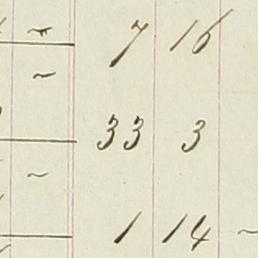 7 16
33 3
1 14 ~